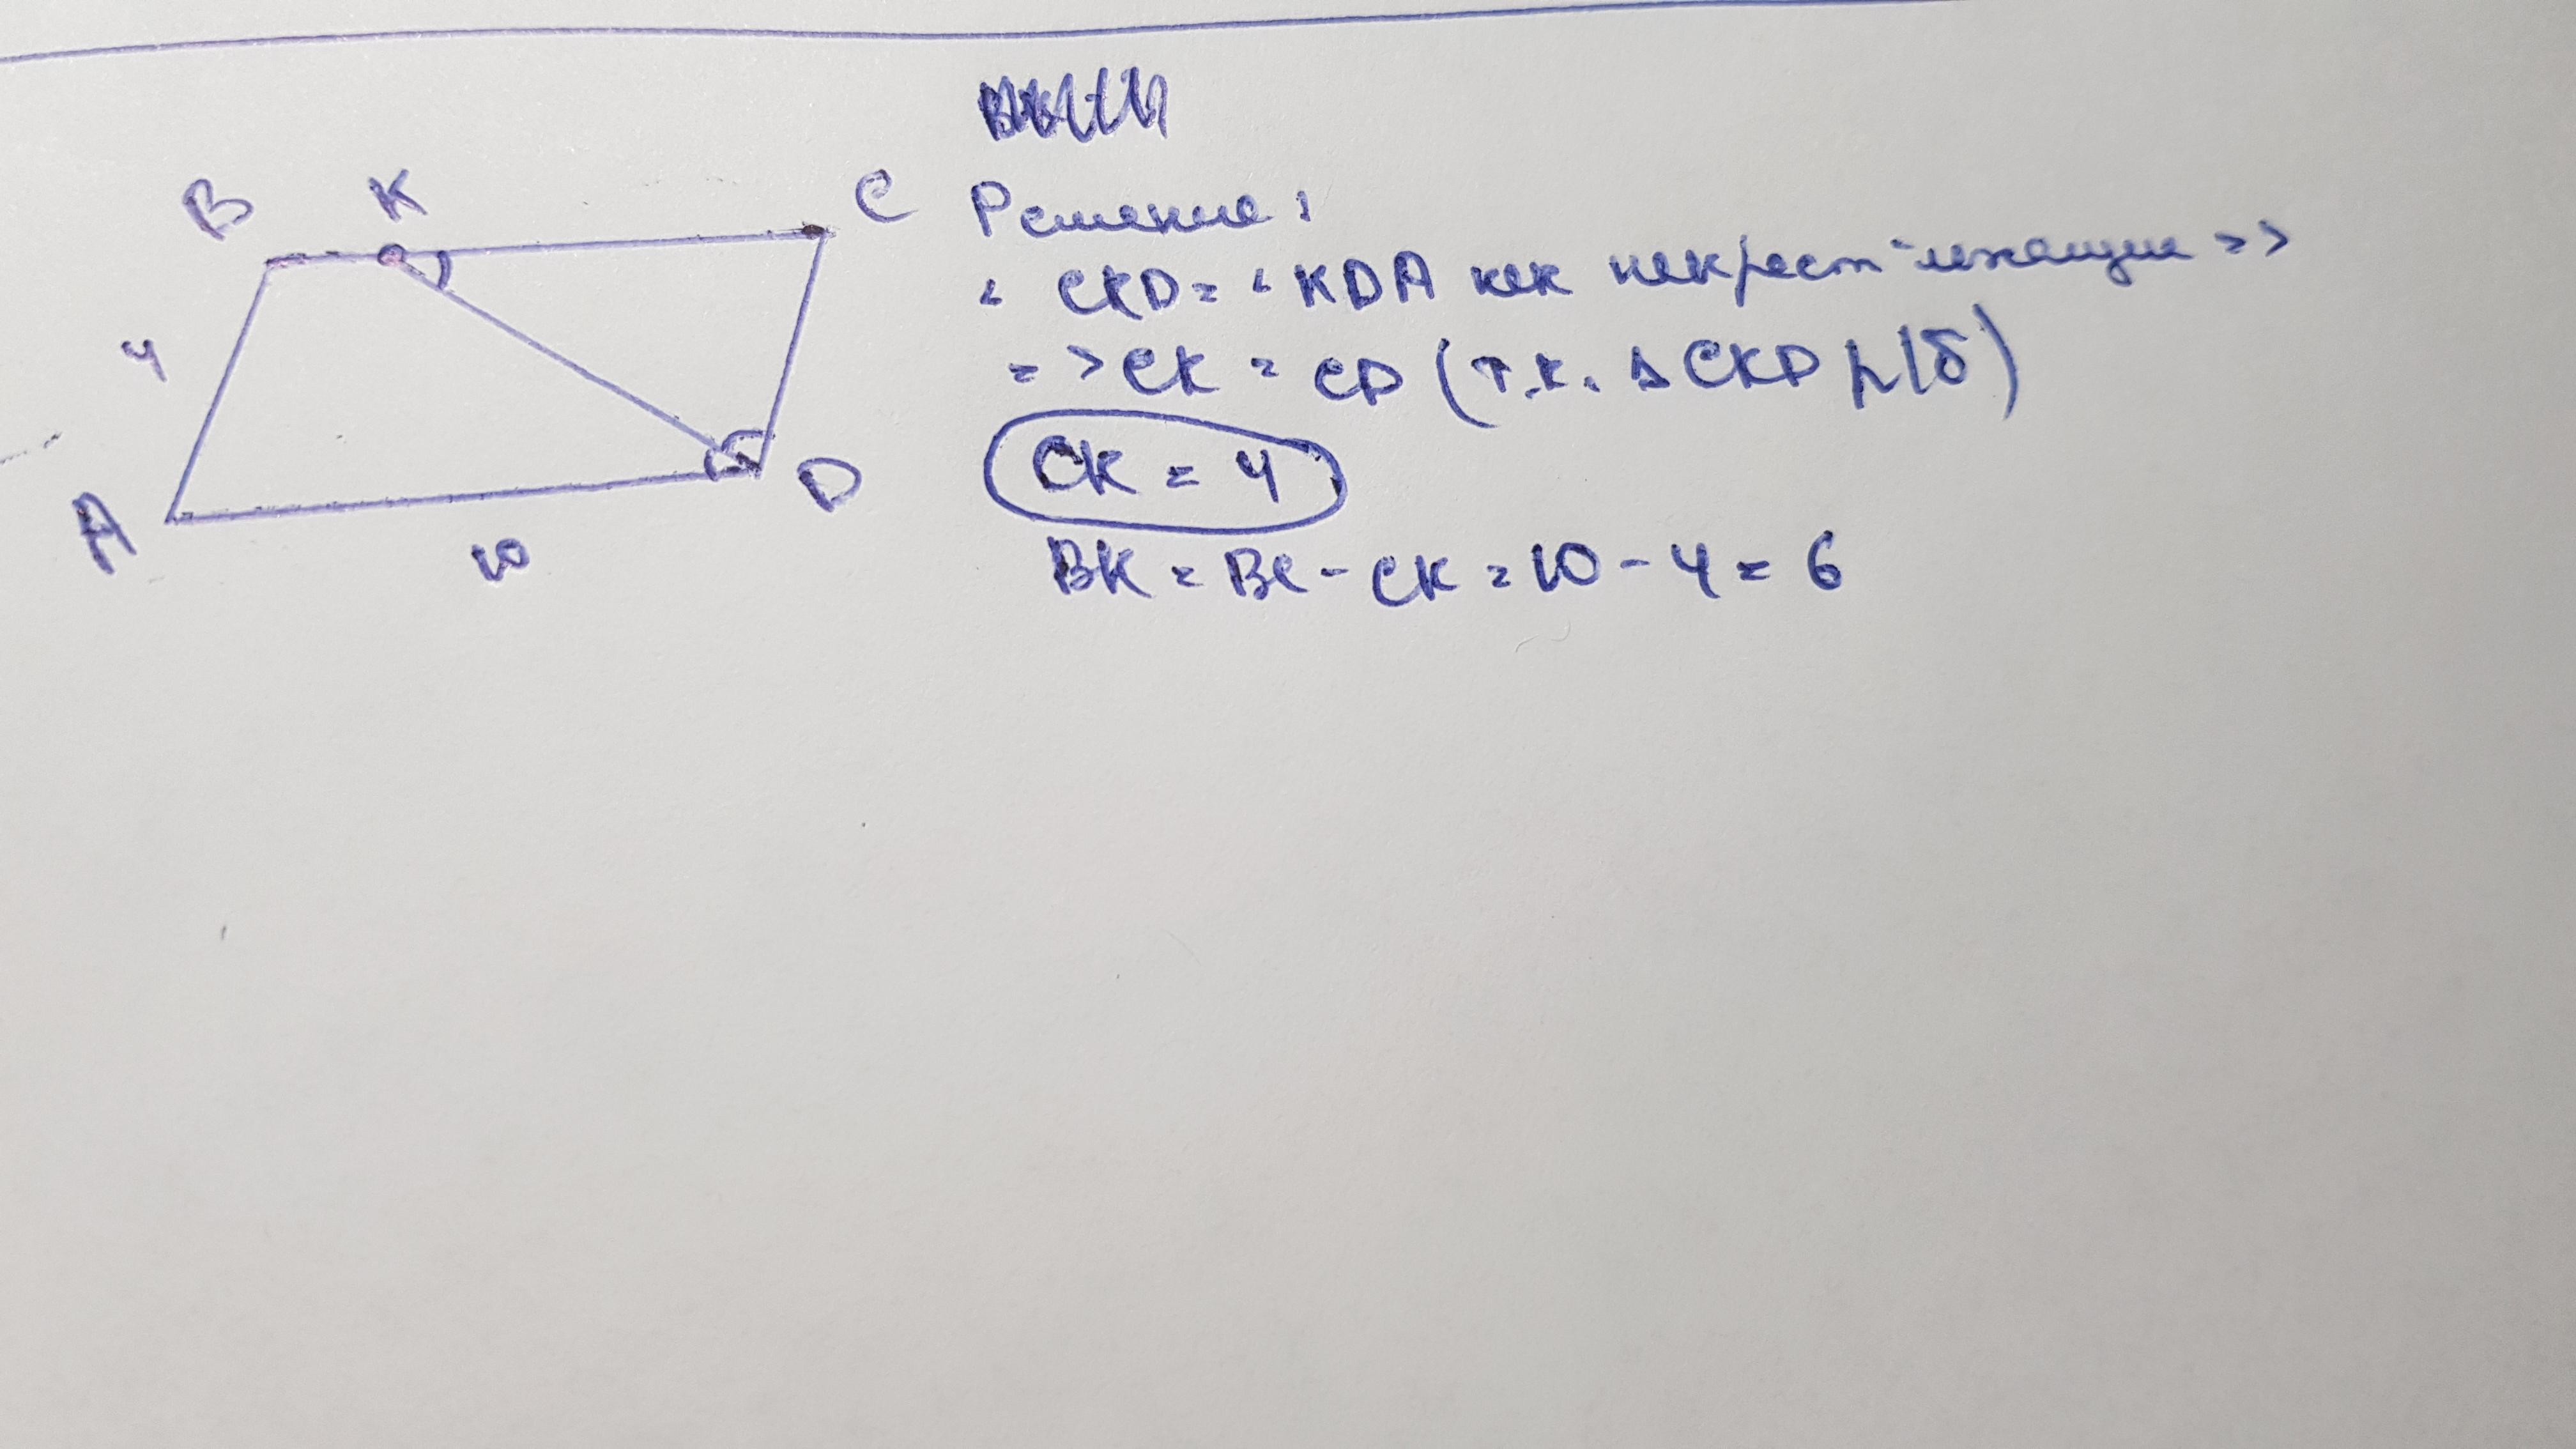 B K C
4
A D
10
Решение:
∠ CKD = ∠ KDA как накрест-лежащие =>
=> CK = CD (т.к. Δ CKD р/б)
CK = 4
BK = BC - CK = 10 - 4 = 6